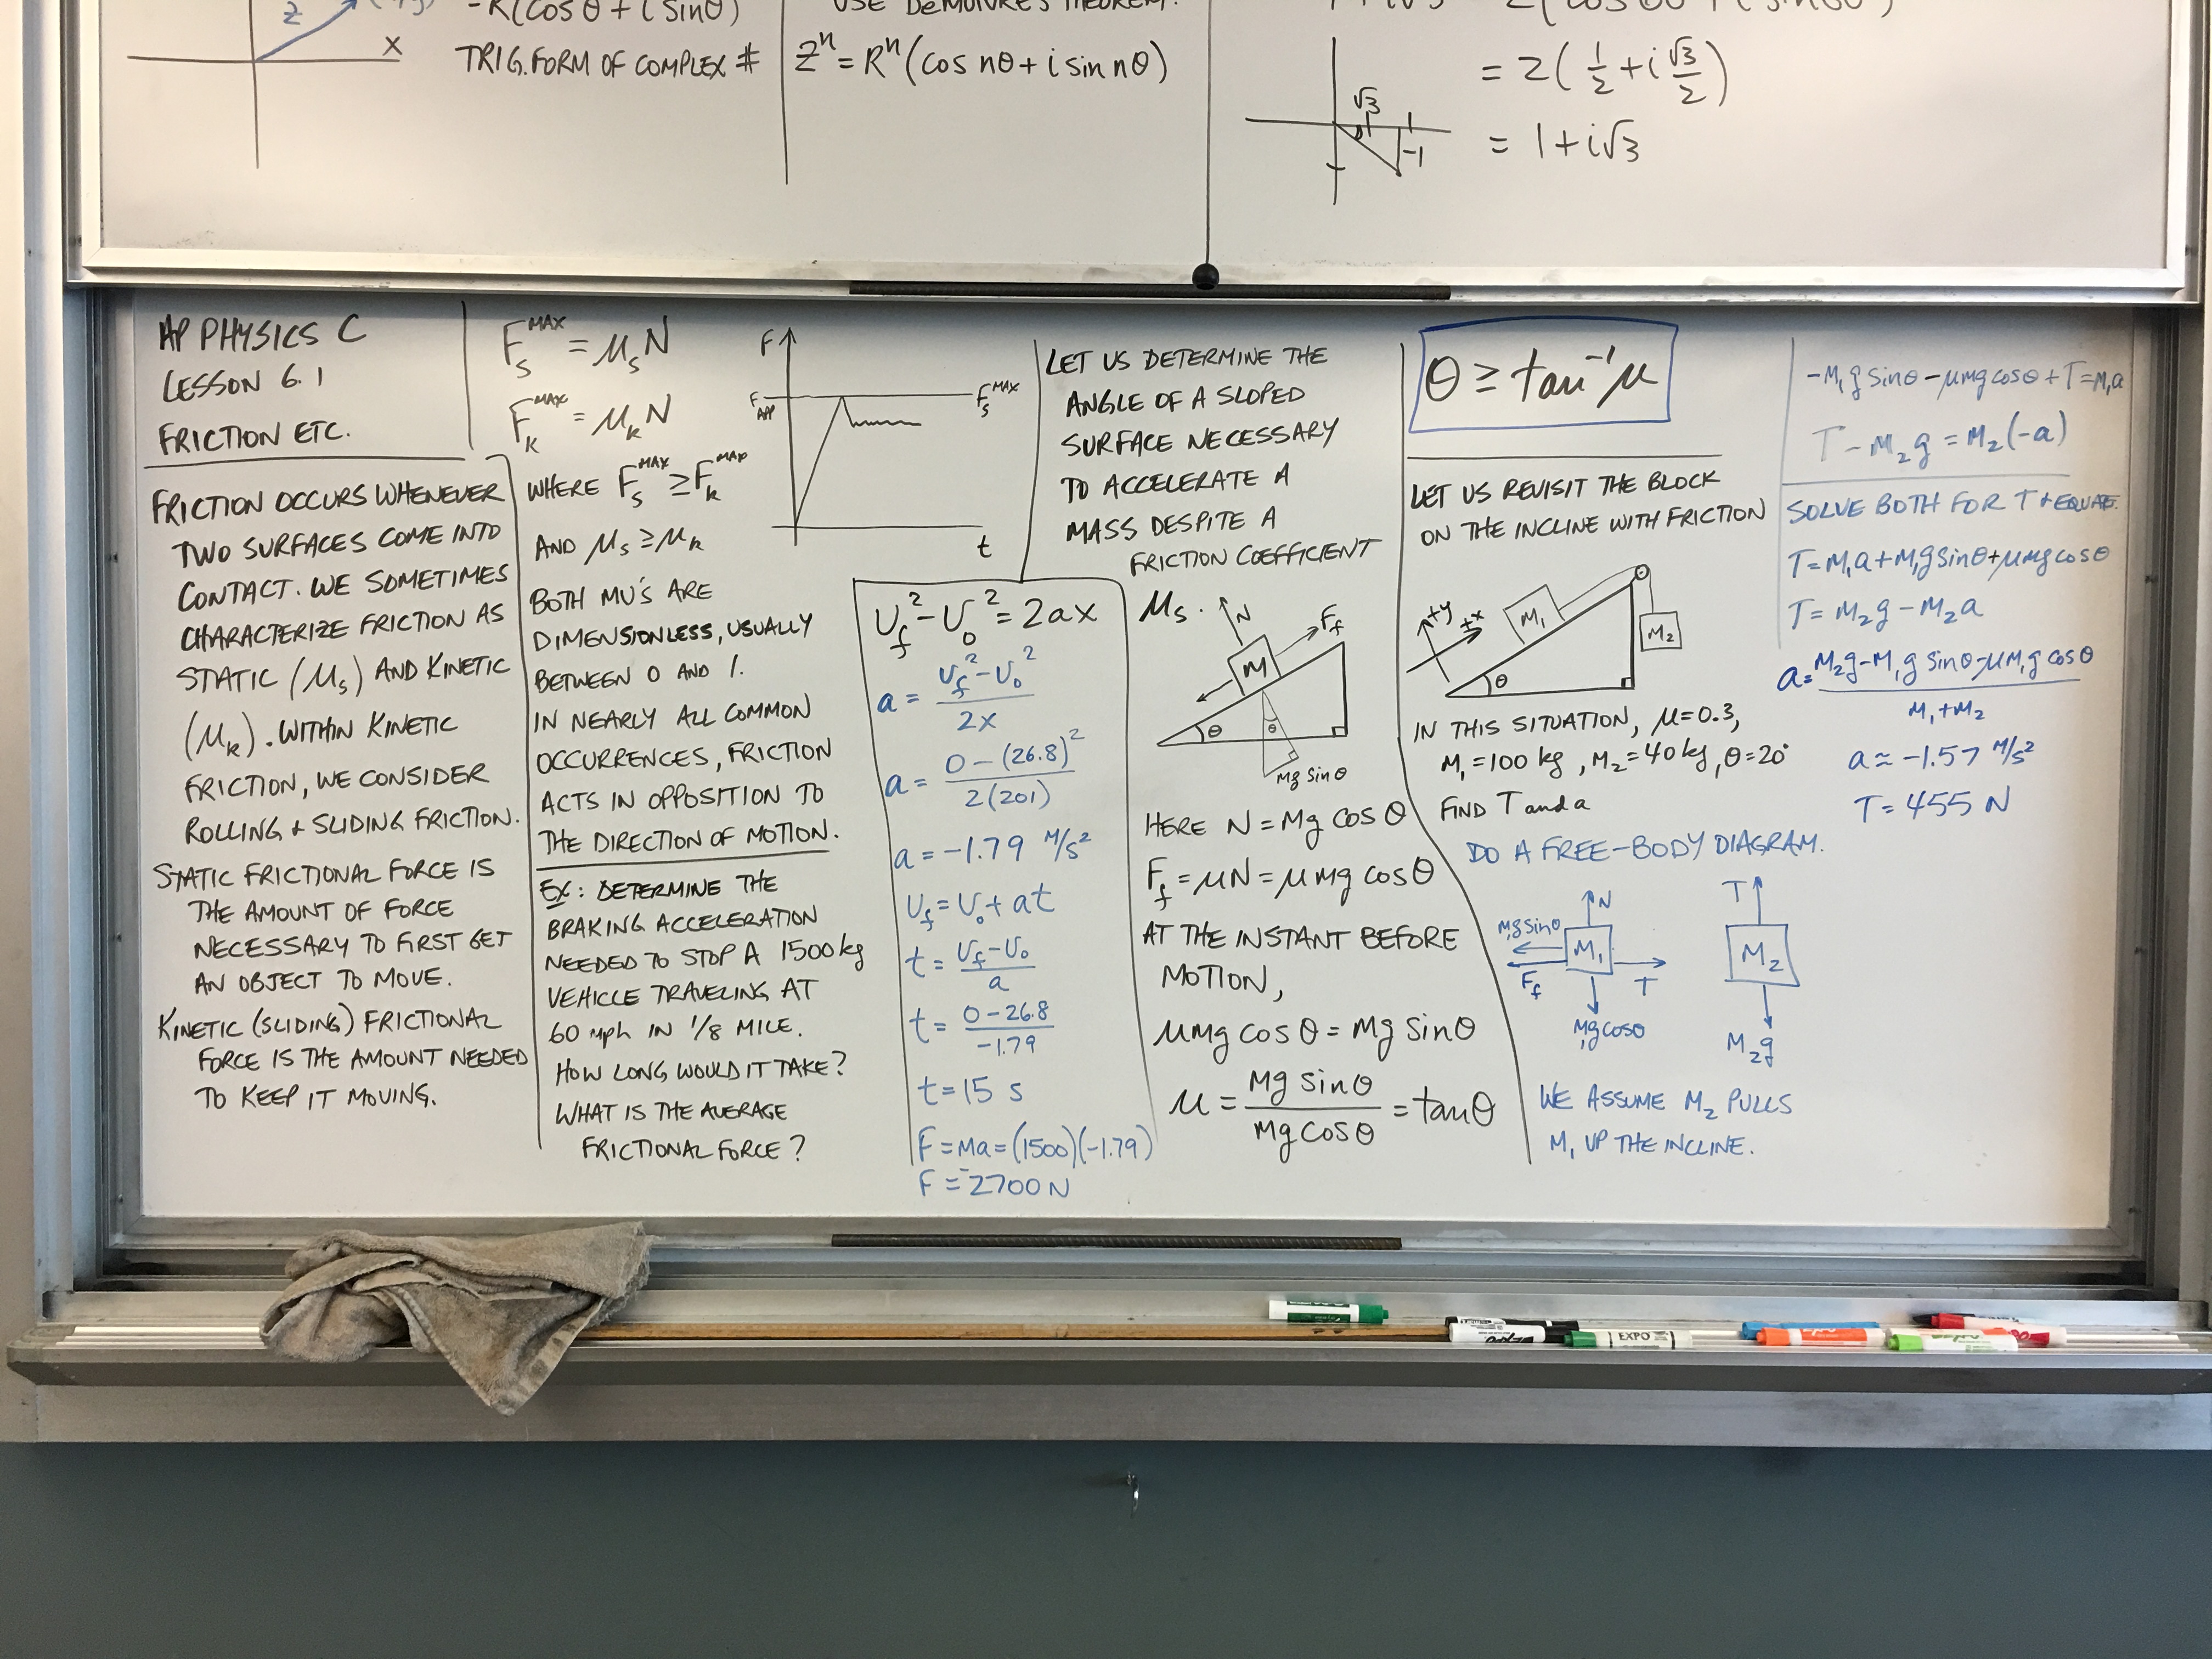 Z
X
-R(cosθ + i sinθ)
TRIG. FORM OF COMPLEX #
USE DeMOIVRE'S THEOREM:
Zⁿ = Rⁿ(cos nθ + i sin nθ)
= 2(1/2 + i √3/2)
= 1 + i√3
√3
1
-1
AP PHYSICS C
LESSON 6.1
FRICTION ETC.
FRICTION OCCURS WHENEVER
TWO SURFACES COME INTO
CONTACT. WE SOMETIMES
CHARACTERIZE FRICTION AS
STATIC (μs) AND KINETIC
(μk). WITHIN KINETIC
FRICTION, WE CONSIDER
ROLLING + SLIDING FRICTION.
STATIC FRICTIONAL FORCE IS
THE AMOUNT OF FORCE
NECESSARY TO FIRST GET
AN OBJECT TO MOVE.
KINETIC (SLIDING) FRICTIONAL
FORCE IS THE AMOUNT NEEDED
TO KEEP IT MOVING.
Fs^MAX = μs N
Fk^MAX = μk N
WHERE Fs^MAX ≥ Fk^MAX
AND μs ≥ μk
BOTH MU'S ARE
DIMENSIONLESS, USUALLY
BETWEEN 0 AND 1.
IN NEARLY ALL COMMON
OCCURRENCES, FRICTION
ACTS IN OPPOSITION TO
THE DIRECTION OF MOTION.
EX: DETERMINE THE
BRAKING ACCELERATION
NEEDED TO STOP A 1500 kg
VEHICLE TRAVELING AT
60 mph IN 1/8 MILE.
HOW LONG WOULD IT TAKE?
WHAT IS THE AVERAGE
FRICTIONAL FORCE?
F
F APP
Fs^MAX
t
Uf² - U₀² = 2ax
a = (Uf² - U₀²)/2x
a = (0 - (26.8)²)/2(201)
a = -1.79 M/s²
Uf = U₀ + at
t = (Uf - U₀)/a
t = (0 - 26.8)/-1.79
t = 15 s
F = Ma = (1500)(-1.79)
F = -2700 N
LET US DETERMINE THE
ANGLE OF A SLOPED
SURFACE NECESSARY
TO ACCELERATE A
MASS DESPITE A
FRICTION COEFFICIENT
μs.
N
Ff
M
θ
θ
Mg sin θ
HERE N = Mg cos θ
Ff = μN = μMg cosθ
AT THE INSTANT BEFORE
MOTION,
μMg cos θ = Mg sinθ
μ = Mg sinθ/Mg cosθ = tanθ
θ ≥ tan⁻¹μ
LET US REVISIT THE BLOCK
ON THE INCLINE WITH FRICTION
+y
+x
M₁
M₂
θ
IN THIS SITUATION, μ = 0.3,
M₁ = 100 kg, M₂ = 40 kg, θ = 20°
FIND T and a
DO A FREE-BODY DIAGRAM.
N
M₁g sinθ
M₁
Ff
T
M₁g cosθ
T
M₂
M₂g
WE ASSUME M₂ PULLS
M₁ UP THE INCLINE.
-M₁g sinθ - μM₁g cosθ + T = M₁a
T - M₂g = M₂(-a)
SOLVE BOTH FOR T + EQUATE.
T = M₁a + M₁g sinθ + μM₁g cosθ
T = M₂g - M₂a
a = (M₂g - M₁g sinθ - μM₁g cosθ)/(M₁ + M₂)
a ≈ -1.57 M/s²
T = 455 N
EXPO